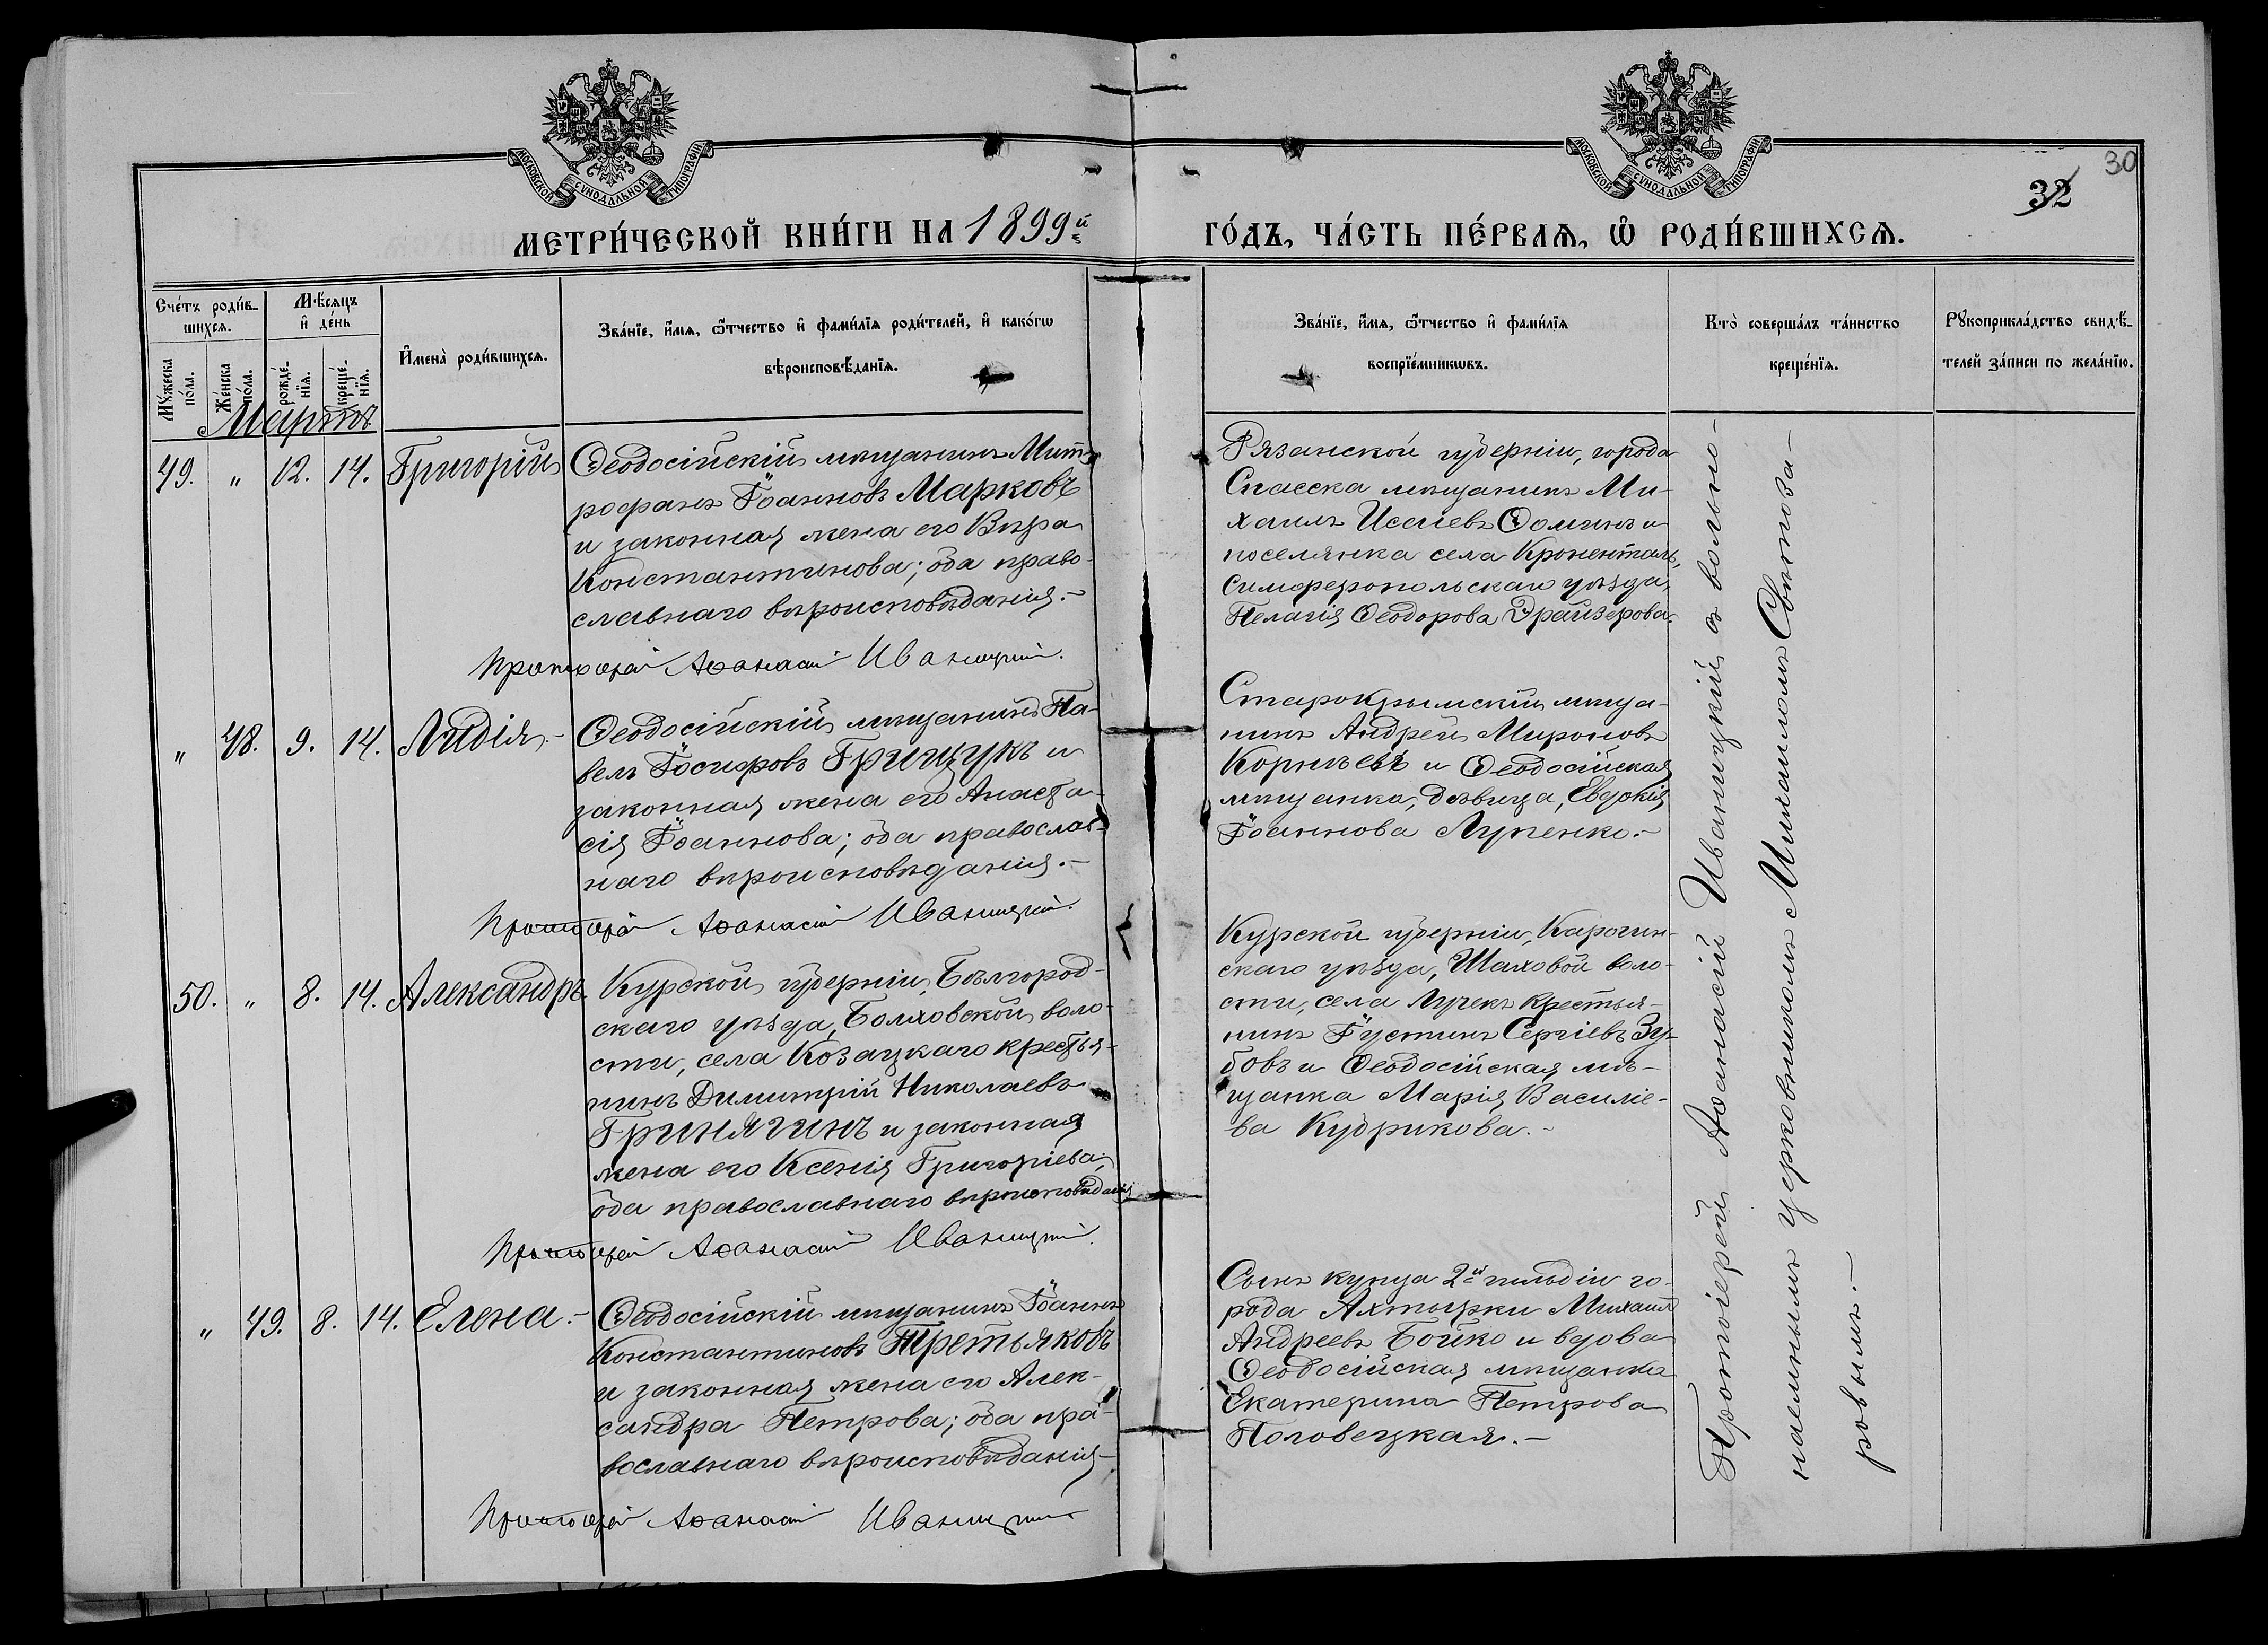 МОСКОВСКОЙ СУНОДАЛЬНОЙ ТИПОГРАФІИ
МОСКОВСКОЙ СУНОДАЛЬНОЙ ТИПОГРАФІИ
30
32
МЕТРИ́ЧЕСКОЙ КНИ́ГИ НА 1899й
ГО́ДЪ, ЧА́СТЬ ПЕ́РВАѦ, Ѡ҆ РОДИ́ВШИХСѦ.
Сче́тъ роди́в-
шихсѧ.
Мѣ́сяцъ
и҆ де́нь
Мꙋ́жеска
по́ла.
Же́нска
по́ла.
рожде́-
нїѧ.
креще́-
нїѧ.
И҆мена̀ роди́вшихсѧ.
Зва́нїе, и҆́мѧ, ѻ҆́тчество и҆ фами́лїѧ роди́телей, и҆ како́гѡ
вѣроисповѣ́данїѧ.
Зва́нїе, и҆́мѧ, ѻ҆́тчество и҆ фами́лїѧ
воспрїе́мникѡвъ.
Кто̀ соверша́лъ та́инство
креще́нїѧ.
Рꙋкоприкла́дство свидѣ́-
телей за́писи по жела́нїю.
Мартъ
49. " 12. 14. Григорій
Ѳеодосійскій мѣщанинъ Мит-
рофанъ Іоанновъ Марковъ
и законная жена его Вѣра
Константинова; оба право-
славнаго вѣроисповѣданія.-
Протоіерей Аѳанасій Иваницкій.
Рязанской губерніи, города
Спасска мѣщанинъ Ми-
хаилъ Исаіевъ Ѳоминъ и
поселянка села Кроненталь,
Симферопольскаго уѣзда,
Пелагія Ѳеодорова Драйзерова.
" 48. 9. 14. Лидія.-
Ѳеодосійскій мѣщанинъ Па-
велъ Іосифовъ Грищукъ и
законная жена его Анаста-
сія Іоаннова; оба православ-
наго вѣроисповѣданія.-
Протоіерей Аѳанасій Иваницкій.
Старокрымскій мѣща-
нинъ Андрей Мироновъ
Корнѣевъ и Ѳеодосійская
мѣщанка, дѣвица, Евдокія
Іоаннова Лупенко.-
50. " 8. 14. Александръ.
Курской губерніи, Бѣлгород-
скаго уѣзда, Болховской воло-
сти, села Козацкаго крестья-
нинъ Димитрій Николаевъ
Гринягинъ и законная
жена его Ксенія Григоріева;
оба православнаго вѣроисповѣданія
Протоіерей Аѳанасій Иваницкій.
Курской губерніи, Карочин-
скаго уѣзда, Шаховой воло-
сти, села Лучекъ крестья-
нинъ Іустинъ Сергіевъ Зу-
бовъ и Ѳеодосійская мѣ-
щанка Марія Василіе-
ва Кудрикова.-
" 49. 8. 14. Елена.-
Ѳеодосійскій мѣщанинъ Іоаннъ
Константиновъ Третьяковъ
и законная жена его Алек-
сандра Петрова; оба пра-
вославнаго вѣроисповѣданія-
Протоіерей Аѳанасій Иваницкій
Сынъ купца 2й гильдіи го-
рода Ахтырки Михаилъ
Андреевъ Бойко и вдова
Ѳеодосійская мѣщанка
Екатерина Петрова
Половецкая.-
Протоіерей Аѳанасій Иваницкій съ вольно-
наемнымъ церковникомъ Михаиломъ Свѣтоза-
ровымъ.-